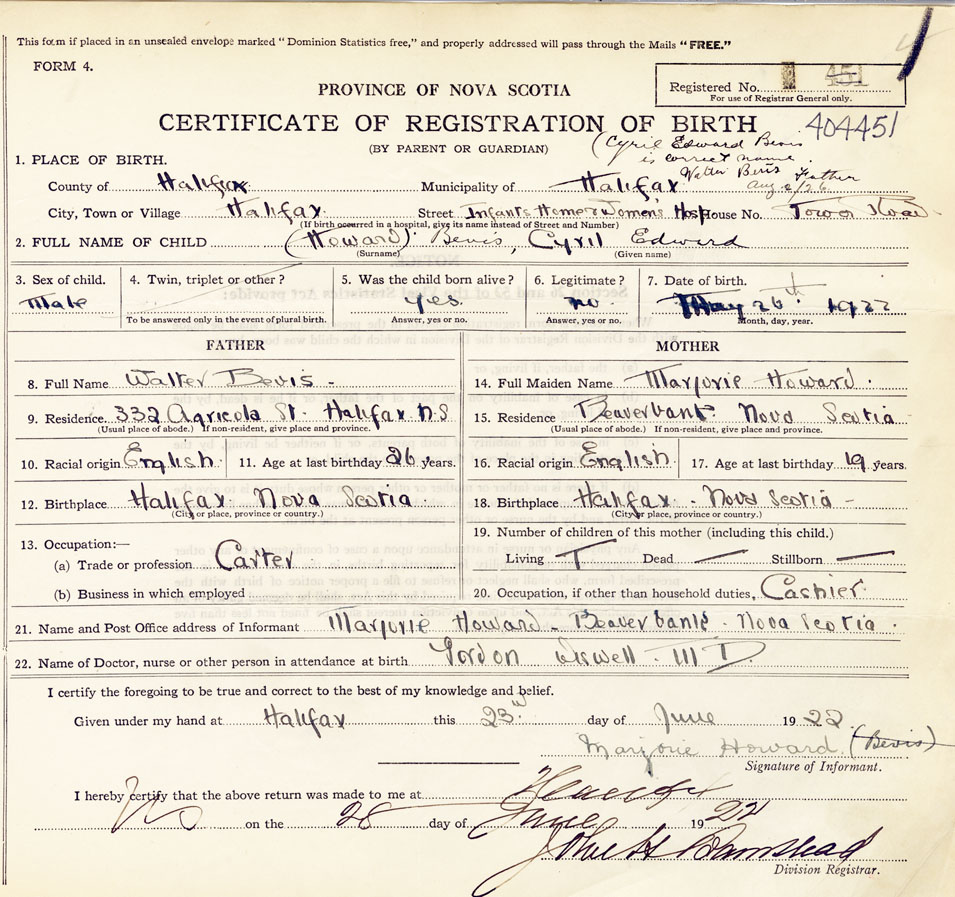 This form if placed in an unsealed envelope marked "Dominion Statistics free," and properly addressed will pass through the Mails "FREE."
FORM 4.
Registered No. 451
For use of Registrar General only.
PROVINCE OF NOVA SCOTIA
CERTIFICATE OF REGISTRATION OF BIRTH 404451
(BY PARENT OR GUARDIAN)
(Cyril Edward Bevis
is correct name.
Walter Bevis Father
Aug 2/26
1. PLACE OF BIRTH.
County of Halifax Municipality of Halifax
City, Town or Village Halifax Street Infants Home & Women's Hosp House No. Tower Road
(If birth occurred in a hospital, give its name instead of Street and Number)
2. FULL NAME OF CHILD (Howard) Bevis, Cyril Edward
(Surname) (Given name)
3. Sex of child. 4. Twin, triplet or other? 5. Was the child born alive? 6. Legitimate? 7. Date of birth.
Male yes no. May 26th 1922
To be answered only in the event of plural birth. Answer, yes or no. Answer, yes or no. Month, day, year.
FATHER MOTHER
8. Full Name Walter Bevis - 14. Full Maiden Name Marjorie Howard.
9. Residence 332 Agricola St. Halifax N.S 15. Residence Beaverbank Nova Scotia
(Usual place of abode.) If non-resident, give place and province. (Usual place of abode.) If non-resident, give place and province.
10. Racial origin English 11. Age at last birthday 26 years. 16. Racial origin English 17. Age at last birthday 19 years.
12. Birthplace Halifax Nova Scotia 18. Birthplace Halifax - Nova Scotia -
(City or place, province or country.) (City or place, province or country.)
13. Occupation:— 19. Number of children of this mother (including this child.)
(a) Trade or profession Carter Living 1 Dead — Stillborn —
(b) Business in which employed 20. Occupation, if other than household duties, Cashier
21. Name and Post Office address of Informant Marjorie Howard - Beaverbank - Nova Scotia.
22. Name of Doctor, nurse or other person in attendance at birth Gordon Wiswell. M D.
I certify the foregoing to be true and correct to the best of my knowledge and belief.
Given under my hand at Halifax this 23rd day of June 1922
Marjorie Howard (Bevis)
Signature of Informant.
I hereby certify that the above return was made to me at Halifax
NS on the 28 day of June 1922
John H Barnstead
Division Registrar.